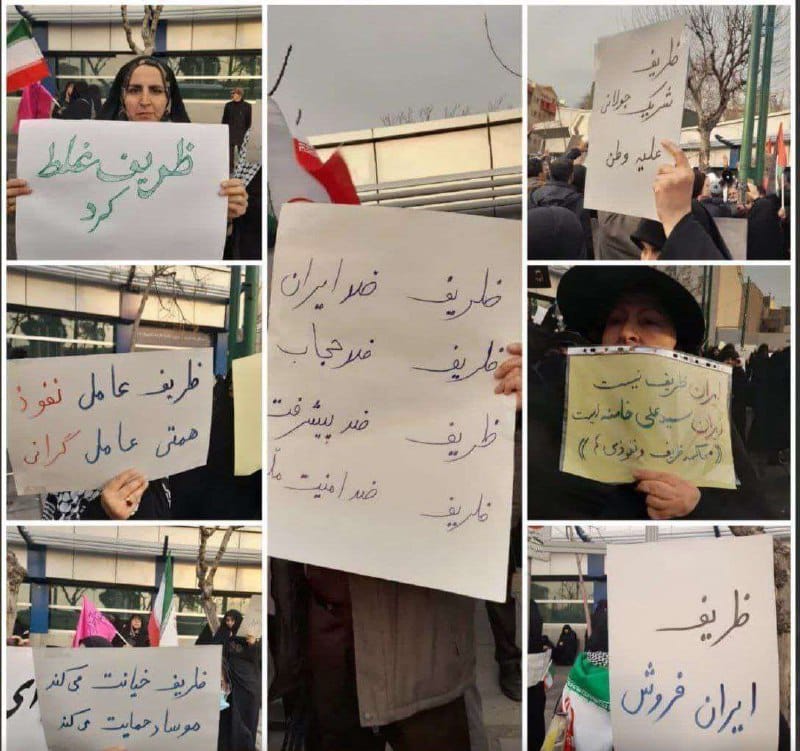 ظریف غلط
کرد
ظریف ضد ایران
ظریف ضد حجاب
ظریف ضد پیشرفت
ظریف ضد امنیت
ظریف
شریک جولانی
علیه وطن
ظریف عامل نفوذ
همتی عامل گرانی
ایران ظریف نیست
ایران سید علی خامنه ایست
ظریف و نفوذی
ظریف خیانت می کند
موساد حمایت می کند
ظریف
ایران فروش